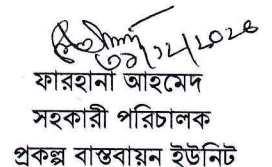 ফারহানা আহমেদ
সহকারী পরিচালক
প্রকল্প বাস্তবায়ন ইউনিট